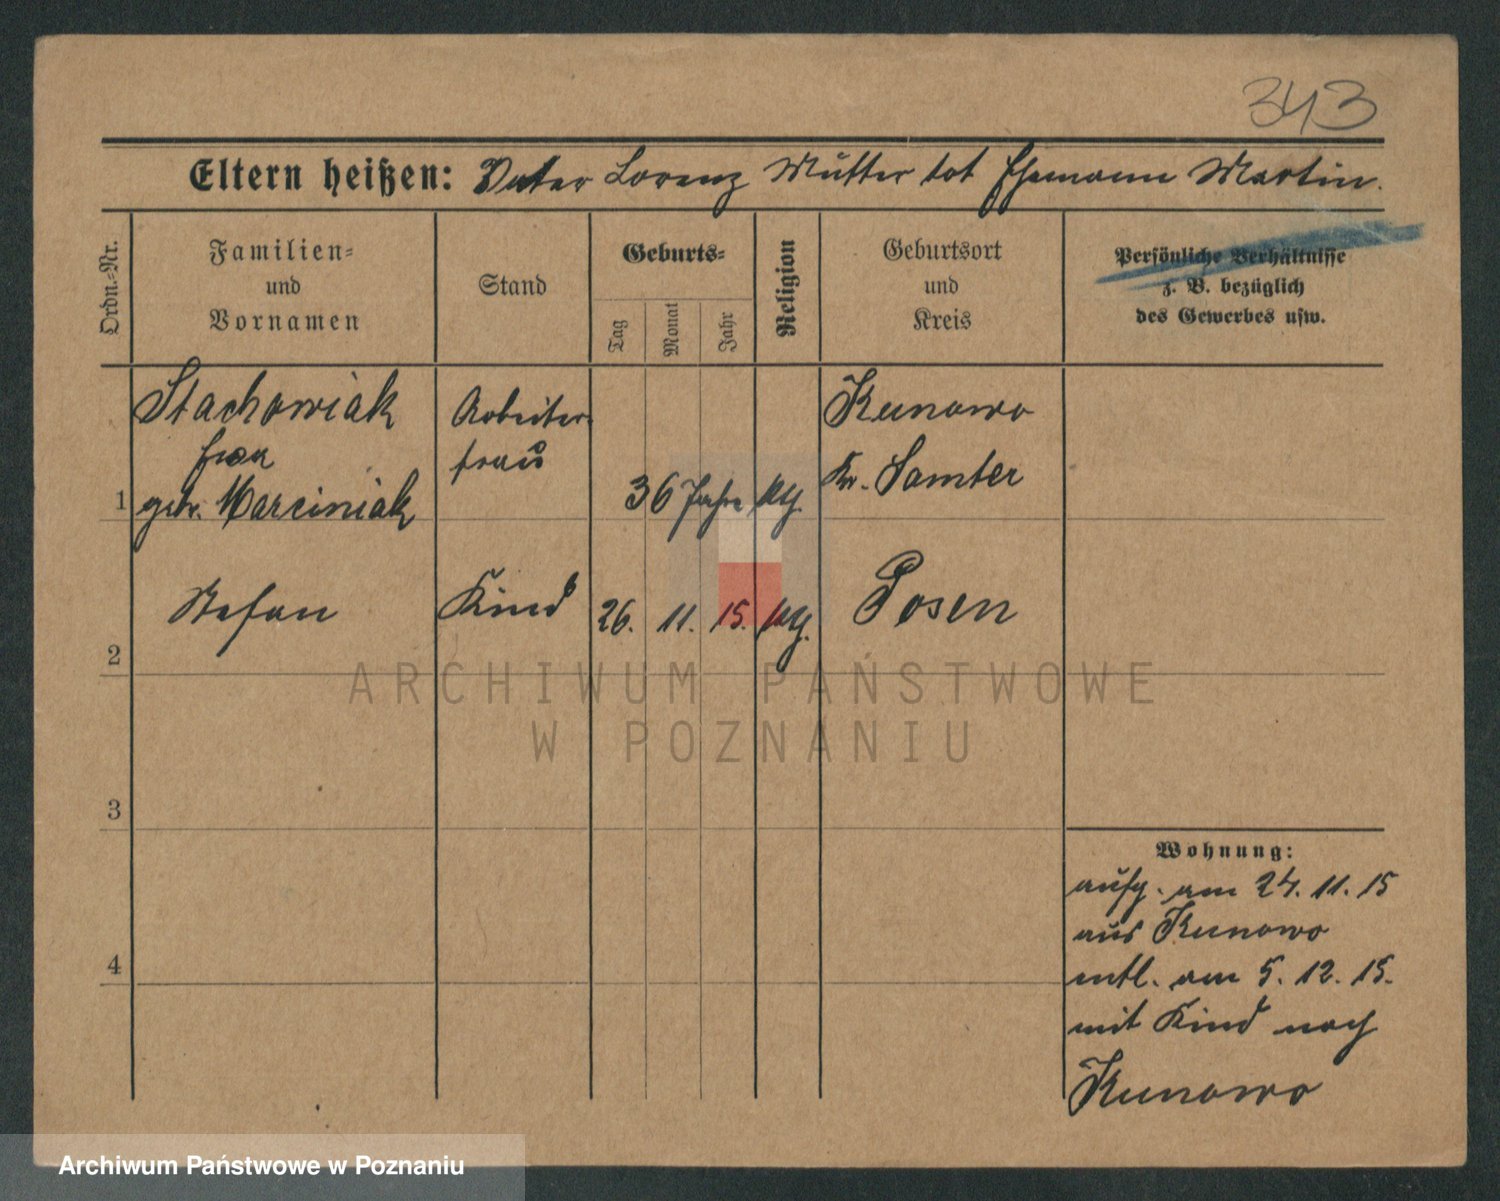 343
Eltern heißen: Vater Lorenz Mutter tot Ehemann Martin.
Ordn.-Nr.
Familien-
und
Vornamen
Stand
Geburts-
Tag
Monat
Jahr
Religion
Geburtsort
und
Kreis
Persönliche Verhältnisse
z. B. bezüglich
des Gewerbes usw.
1
Stachowiak
geb. Marciniak
Arbeiter
frau
36 Jahre
kth.
Kunowo
Kr. Samter
2
Stefan
Kind
26.
11.
15.
kth.
Posen
3
4
Wohnung:
aufg. am 24. 11. 15
aus Kunowo
entl. am 5. 12. 15.
mit Kind nach
Kunowo
ARCHIWUM PAŃSTWOWE
W POZNANIU
Archiwum Państwowe w Poznaniu